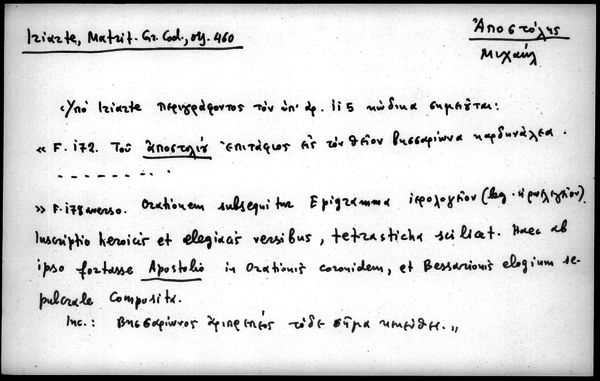 Iriarte, Matrit. Gr. Cod., σελ. 460
Ἀποστόλης
Μιχαήλ
Ὑπὸ Iriarte περιγράφοντος τὸν ὑπ' ἀρ. 115 κώδικα σημειοῦται:
« F. 172. Τοῦ ἀποστολίου Ἐπιτάφιος εἰς τὸν θεῖον Βησσαρίωνα καρδηνάλεα.
» F. 178 averso. Orationem subsequitur Epigramma ἱρολογεῖον (leg. ἡρωελεγεῖον)
Inscriptio heroicis et elegiacis versibus, tetrasticha scilicet. Haec ab
ipso fortasse Apostolio in Orationis coronidem, et Bessarionis elogium se-
pulcrale composita.
Inc.: Βησσαρίωνος ἀριπρεπέος τόδε σῆμα κεκεύθει. „